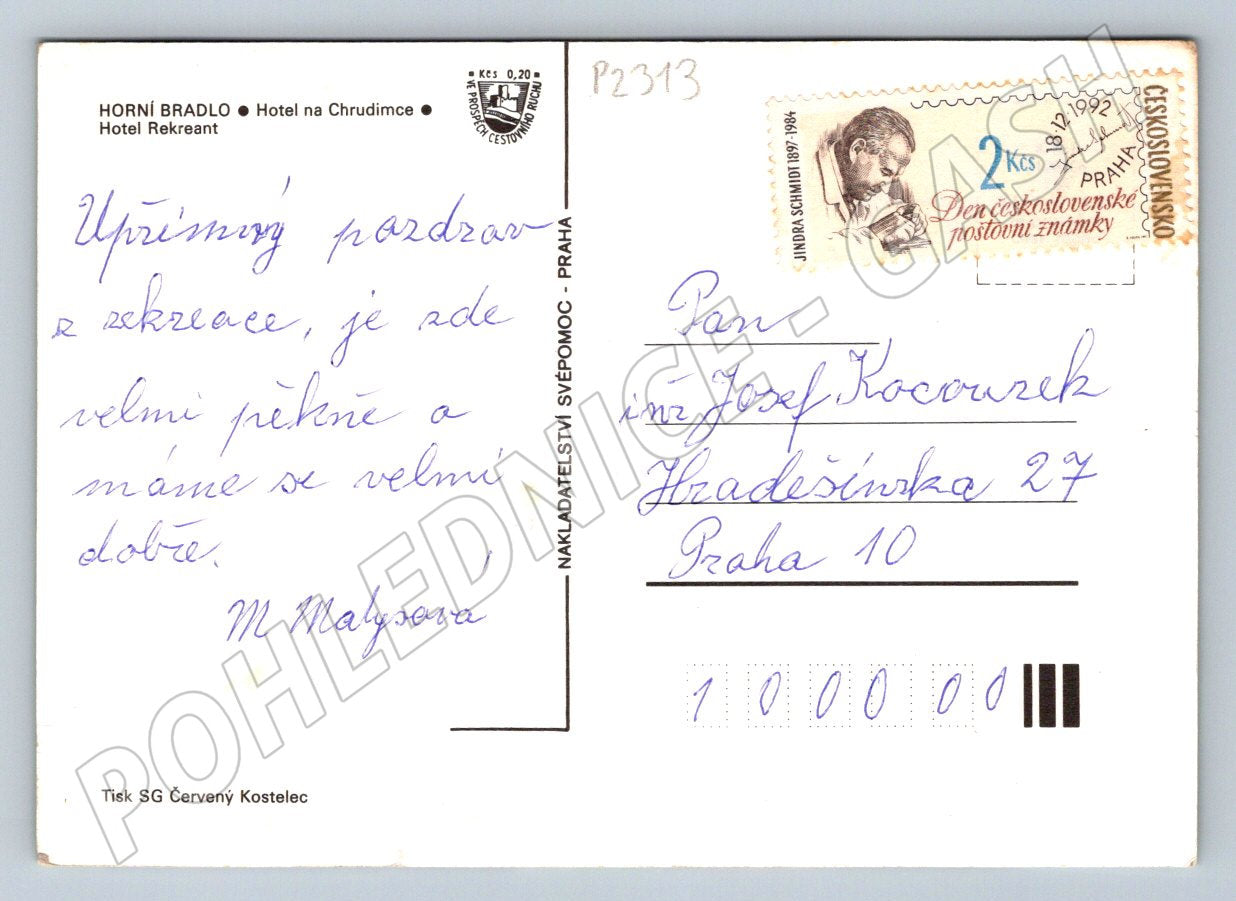 HORNÍ BRADLO ● Hotel na Chrudimce ●
Hotel Rekreant
Kčs 0,20
VE PROSPĚCH CESTOVNÍHO RUCHU
Upřímný pozdrav
z rekreace, je zde
velmi pěkně a
máme se velmi
dobře.
M Malysová
Tisk SG Červený Kostelec
NAKLADATELSTVÍ SVÉPOMOC - PRAHA
P2313
JINDRA SCHMIDT 1897-1984
2 Kčs
18.12.1992
PRAHA
ČESKOSLOVENSKO
Den československé
poštovní známky
Pan
inž Josef Kocourek
Hradešínska 27
Praha 10
1 0 0 0 0 0
POHLEDNICE - GASH